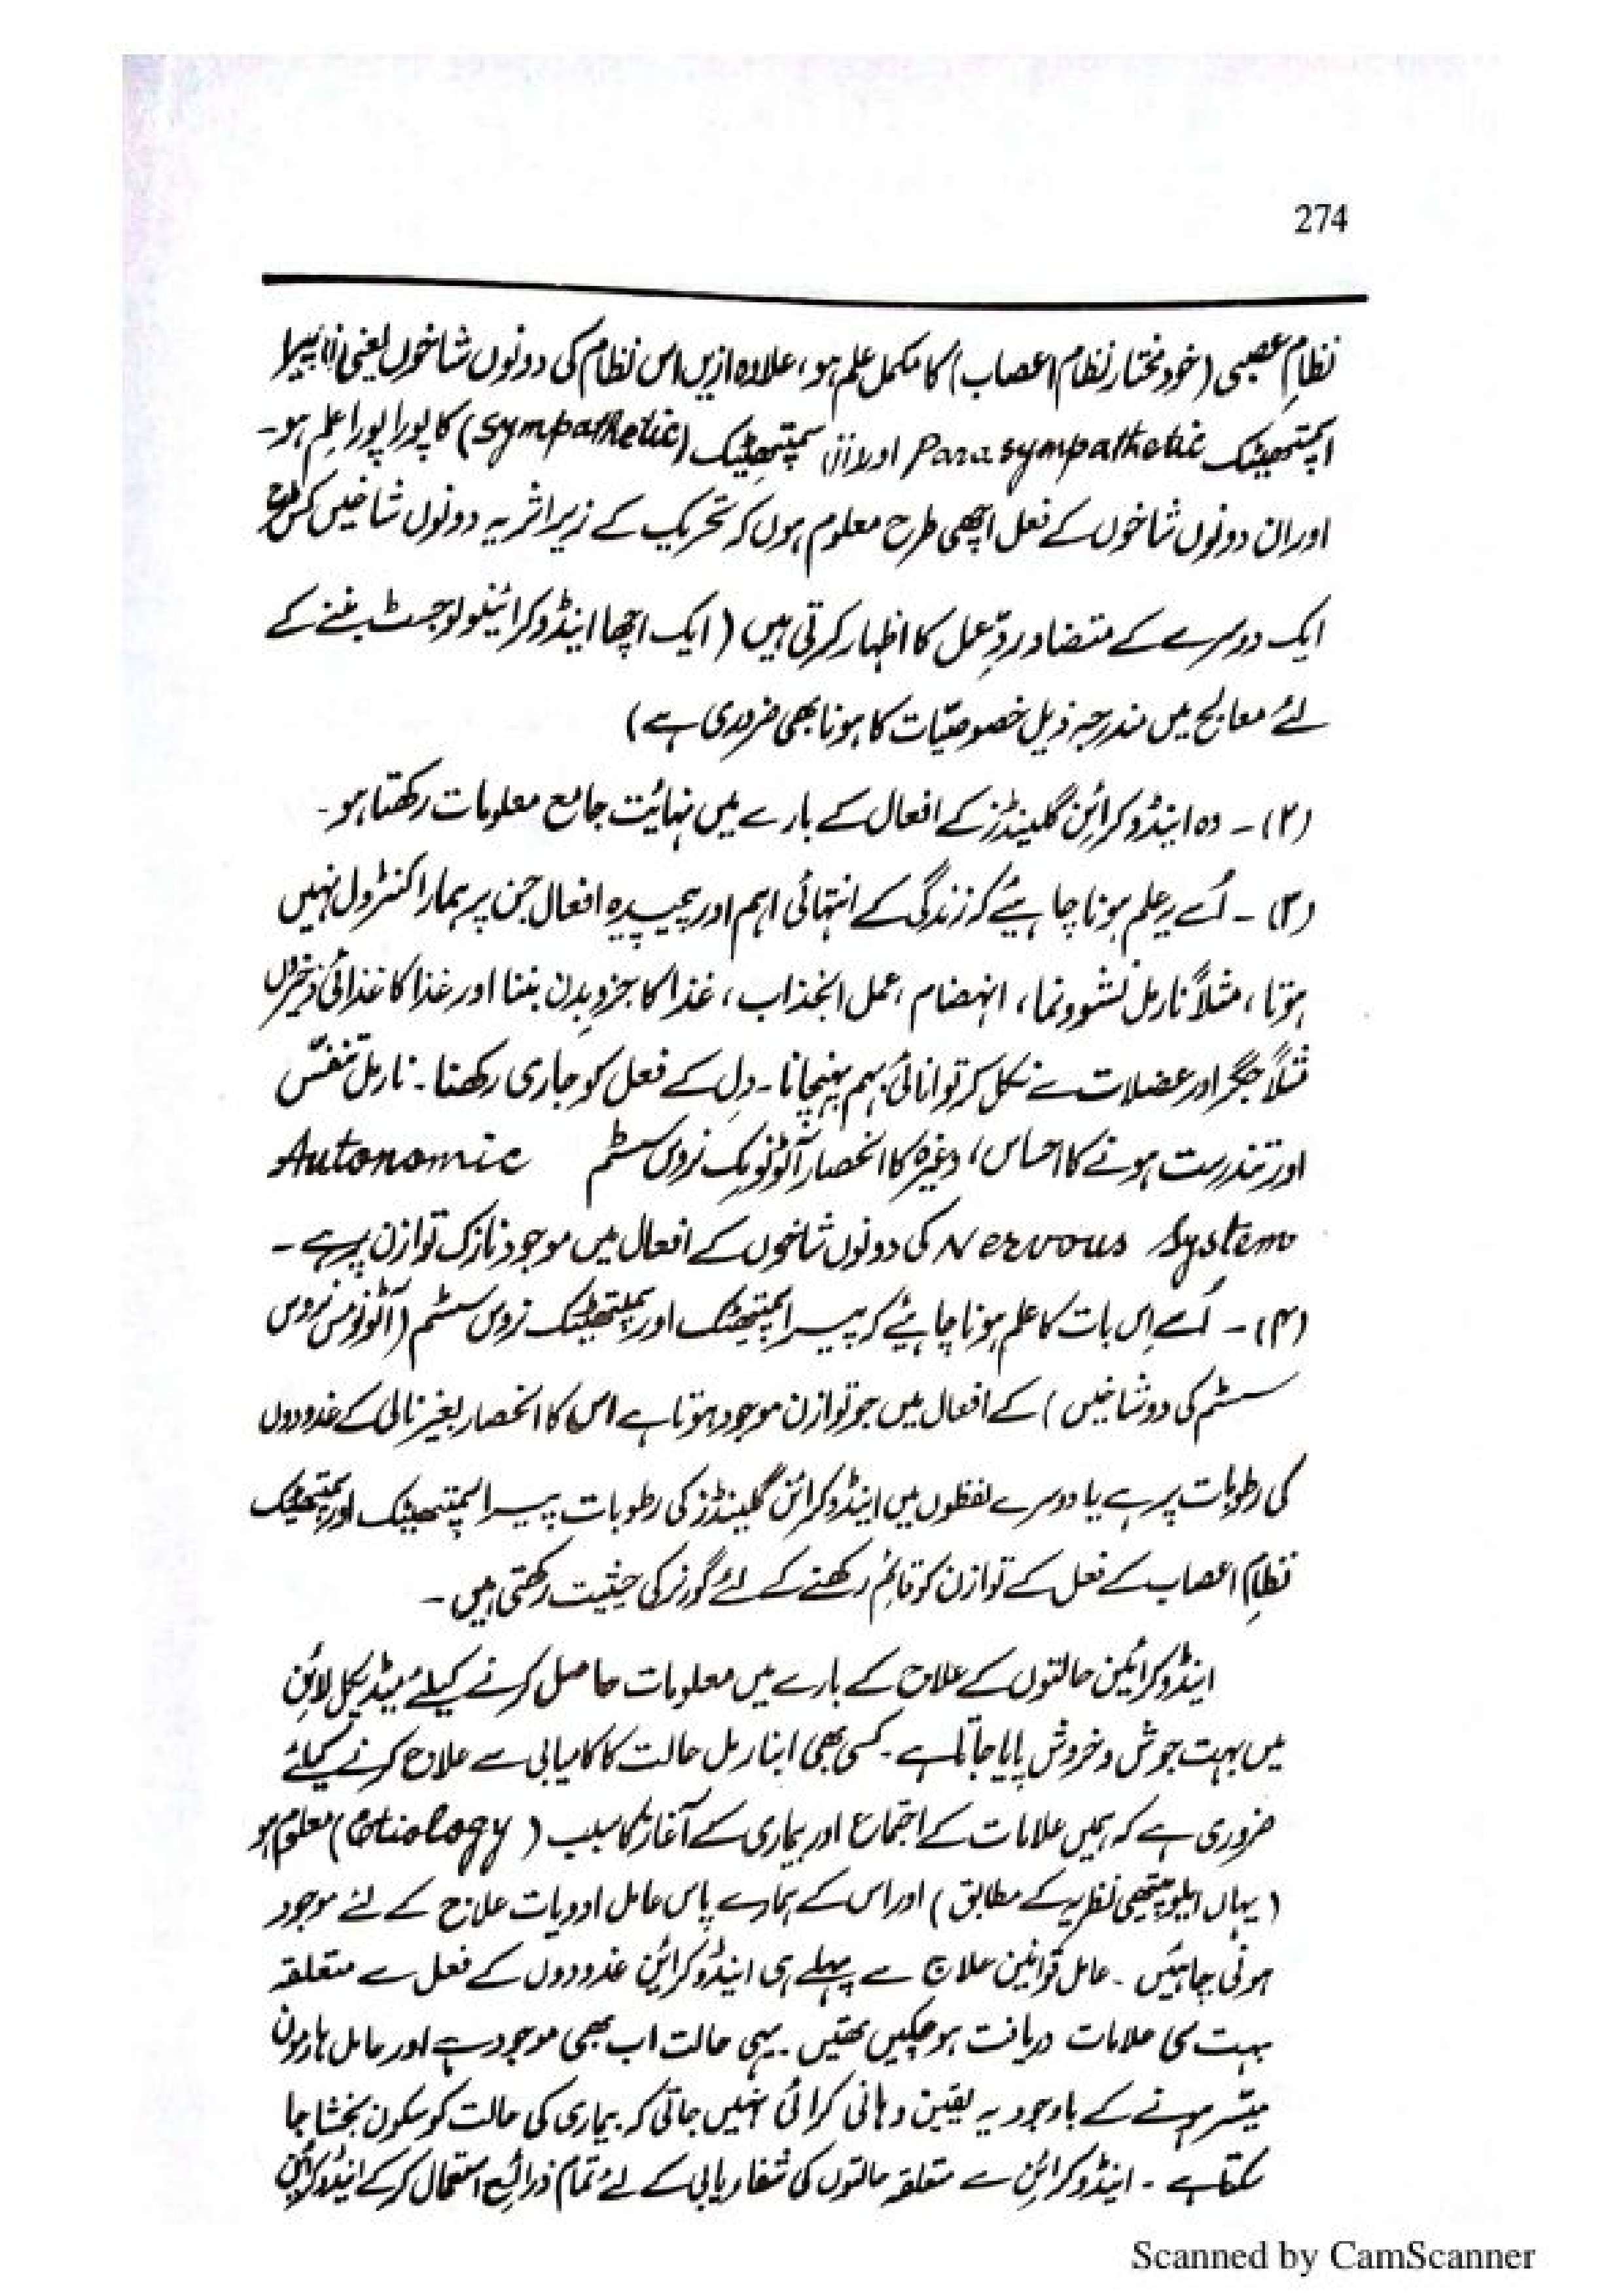 274
نظامِ عصبی (خود مختار نظام اعصاب) کا مکمل علم ہو، علاوہ ازیں اس نظام کی دونوں شاخوں یعنی (i) پیرا
سمپتھیٹک Parasympathetic اور (ii) سمپتھیٹک (Sympathetic) کا پورا پورا علم ہو۔
اور ان دونوں شاخوں کے فعل اچھی طرح معلوم ہوں کہ تحریک کے زیر اثر یہ دونوں شاخیں کس طرح
ایک دوسرے کے متضاد ردِّ عمل کا اظہار کرتی ہیں (ایک اچھا اینڈوکرائینولوجسٹ بننے کے
لئے معالج میں مندرجہ ذیل خصوصیّات کا ہونا بھی ضروری ہے)
(۲)۔ وہ اینڈوکرائن گلینڈز کے افعال کے بارے میں نہائیت جامع معلومات رکھتا ہو۔
(۳)۔ اُسے یہ علم ہونا چاہیئے کہ زندگی کے انتہائی اہم اور پیچیدہ افعال جن پر ہمارا کنٹرول نہیں
ہوتا، مثلاً نارمل نشوونما، انہضام، عمل انجذاب، غذا کا جزوِ بدن بننا اور غذا کا غذائی ذخیروں
مثلاً جگر اور عضلات سے نکل کر توانائی بہم پہنچانا۔ دِل کے فعل کو جاری رکھنا۔ نارمل تنفّس
اور تندرست ہونے کا احساس، وغیرہ کا انحصار آٹونومک نروس سسٹم Autonomic
Nervous System کی دونوں شاخوں کے افعال میں موجود نازک توازن پر ہے۔
(۴)۔ اُسے اِس بات کا علم ہونا چاہیئے کہ پیرا سمپتھیٹک اور سمپتھیٹک نروس سسٹم (آٹونومس نروس
سسٹم کی دو شاخیں) کے افعال میں جو توازن موجود ہوتا ہے اس کا انحصار بغیر نالی کے غدودوں
کی رطوبات پر ہے یا دوسرے لفظوں میں اینڈوکرائن گلینڈز کی رطوبات پیرا سمپتھیٹک اور سمپتھیٹک
نظامِ اعصاب کے فعل کے توازن کو قائم رکھنے کے لئے گورنر کی حیثیت رکھتی ہیں۔
اینڈوکرائین حالتوں کے علاج کے بارے میں معلومات حاصل کرنے کیلئے میڈیکل لائن
میں بہت جوش و خروش پایا جاتا ہے۔ کسی بھی ابنارمل حالت کا کامیابی سے علاج کرنے کیلئے
ضروری ہے کہ ہمیں علامات کے اجتماع اور بیماری کے آغاز کا سبب (Etiology) معلوم ہو
(یہاں ایلوپیتھی نظریہ کے مطابق) اور اس کے ہمارے پاس عامل ادویات علاج کے لئے موجود
ہونی چاہئیں۔ عامل قوانین علاج سے پہلے ہی اینڈوکرائن غدودوں کے فعل سے متعلقہ
بہت سی علامات دریافت ہو چکیں تھیں۔ یہی حالت اب بھی موجود ہے اور عامل ہارمون
میّسر ہونے کے باوجود یہ یقین دہانی کرائی نہیں جاتی کہ بیماری کی حالت کو سکون بخشا جا
سکتا ہے۔ اینڈوکرائن سے متعلقہ حالتوں کی شفایابی کے لئے تمام ذرائع استعمال کر کے اینڈوکرائن
Scanned by CamScanner